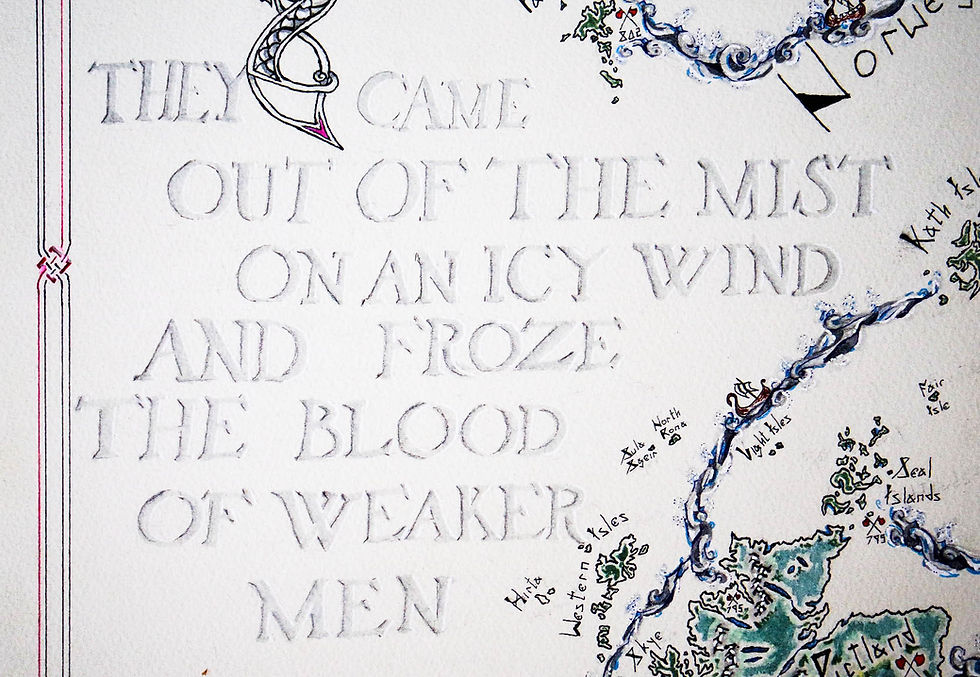 THEY CAME
OUT OF THE MIST
ON AN ICY WIND
AND FROZE
THE BLOOD
OF WEAKER
MEN
802
Norwe
Kath Isl
Fair
Isle
North
Rona
Sula
Sgeir
Vight Isles
Seal
Islands
795
Western Isles
Hirta
795
Skye
Pictland